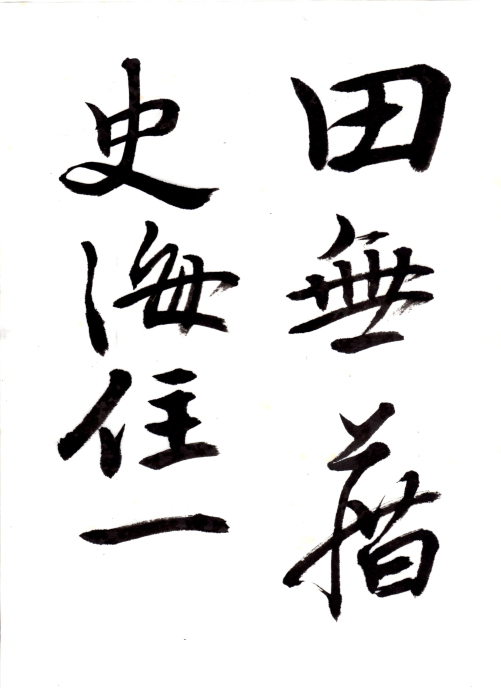 田無藉
史海住一